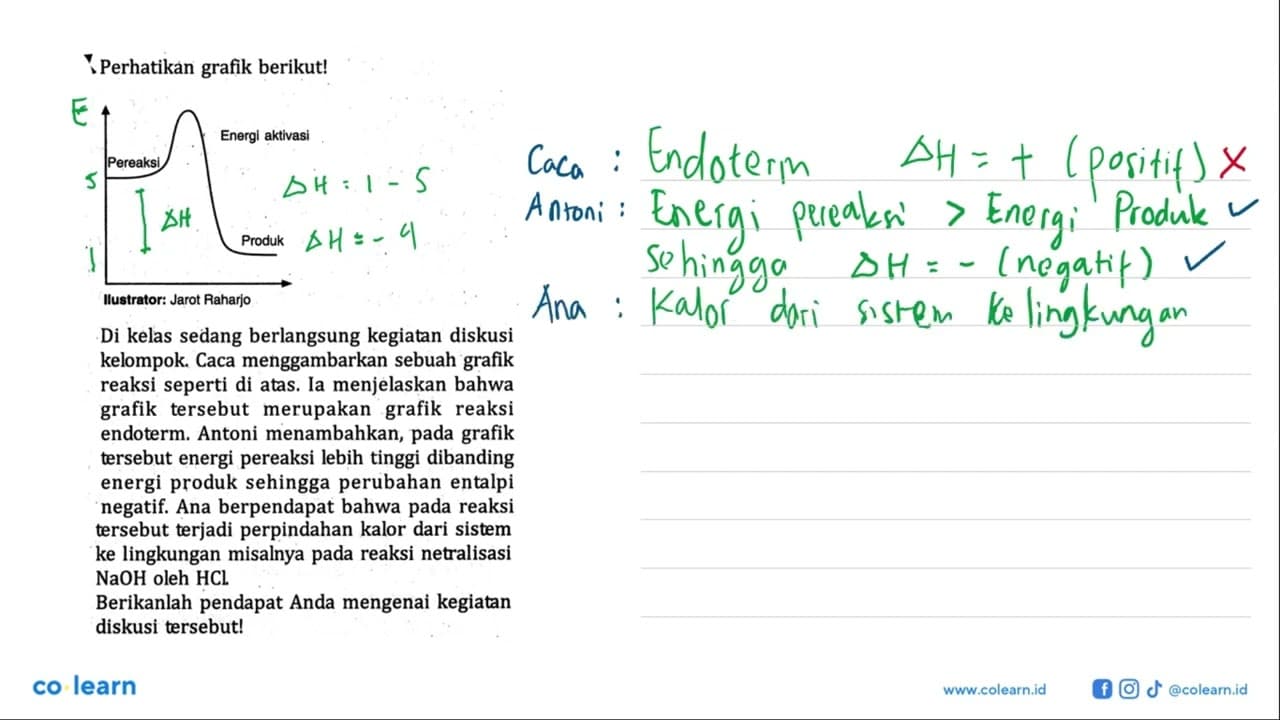 Perhatikan grafik berikut!
E
Energi aktivasi
Pereaksi
5
ΔH = 1 - 5
ΔH
Produk
ΔH = - 4
1
Ilustrator: Jarot Raharjo
Di kelas sedang berlangsung kegiatan diskusi
kelompok. Caca menggambarkan sebuah grafik
reaksi seperti di atas. Ia menjelaskan bahwa
grafik tersebut merupakan grafik reaksi
endoterm. Antoni menambahkan, pada grafik
tersebut energi pereaksi lebih tinggi dibanding
energi produk sehingga perubahan entalpi
negatif. Ana berpendapat bahwa pada reaksi
tersebut terjadi perpindahan kalor dari sistem
ke lingkungan misalnya pada reaksi netralisasi
NaOH oleh HCl.
Berikanlah pendapat Anda mengenai kegiatan
diskusi tersebut!
Caca : Endoterm ΔH = + (positif) ✗
Antoni : Energi pereaksi > Energi Produk ✓
sehingga ΔH = - (negatif) ✓
Ana : Kalor dari sistem ke lingkungan
co learn
www.colearn.id
@colearn.id